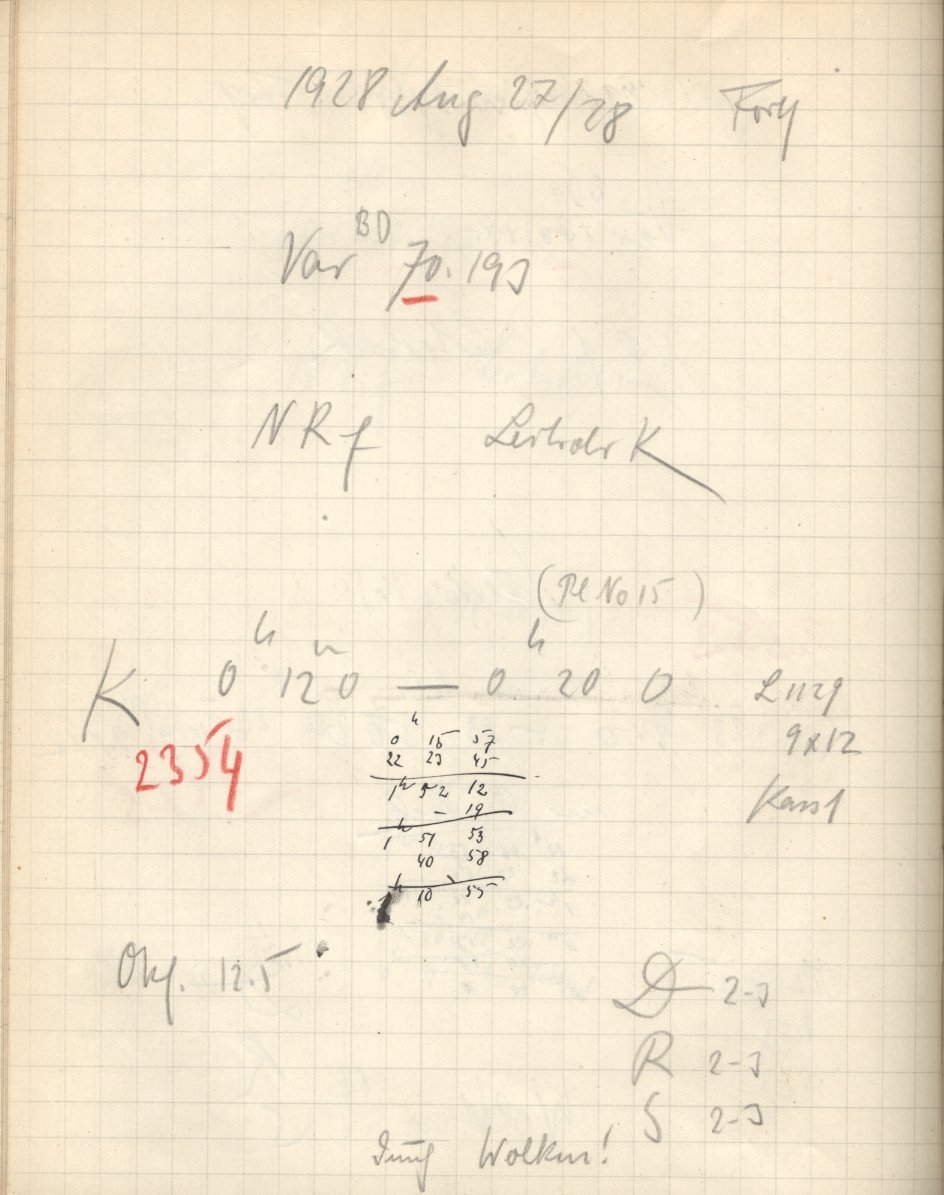 1928 Aug 27/28
BD
Var 70.193
NRf Leitrohr K
(Pl No 15)
K 0 h 12 m 0 — 0 h 20 0 L 1129
2354
9x12
Kass 1
0 h 15 57
22 23 45
1 h 52 12
– 19
1 h 51 53
40 58
1 h 10 55
Okj. 12.5
D 2-3
R 2-3
S 2-3
durch Wolken!